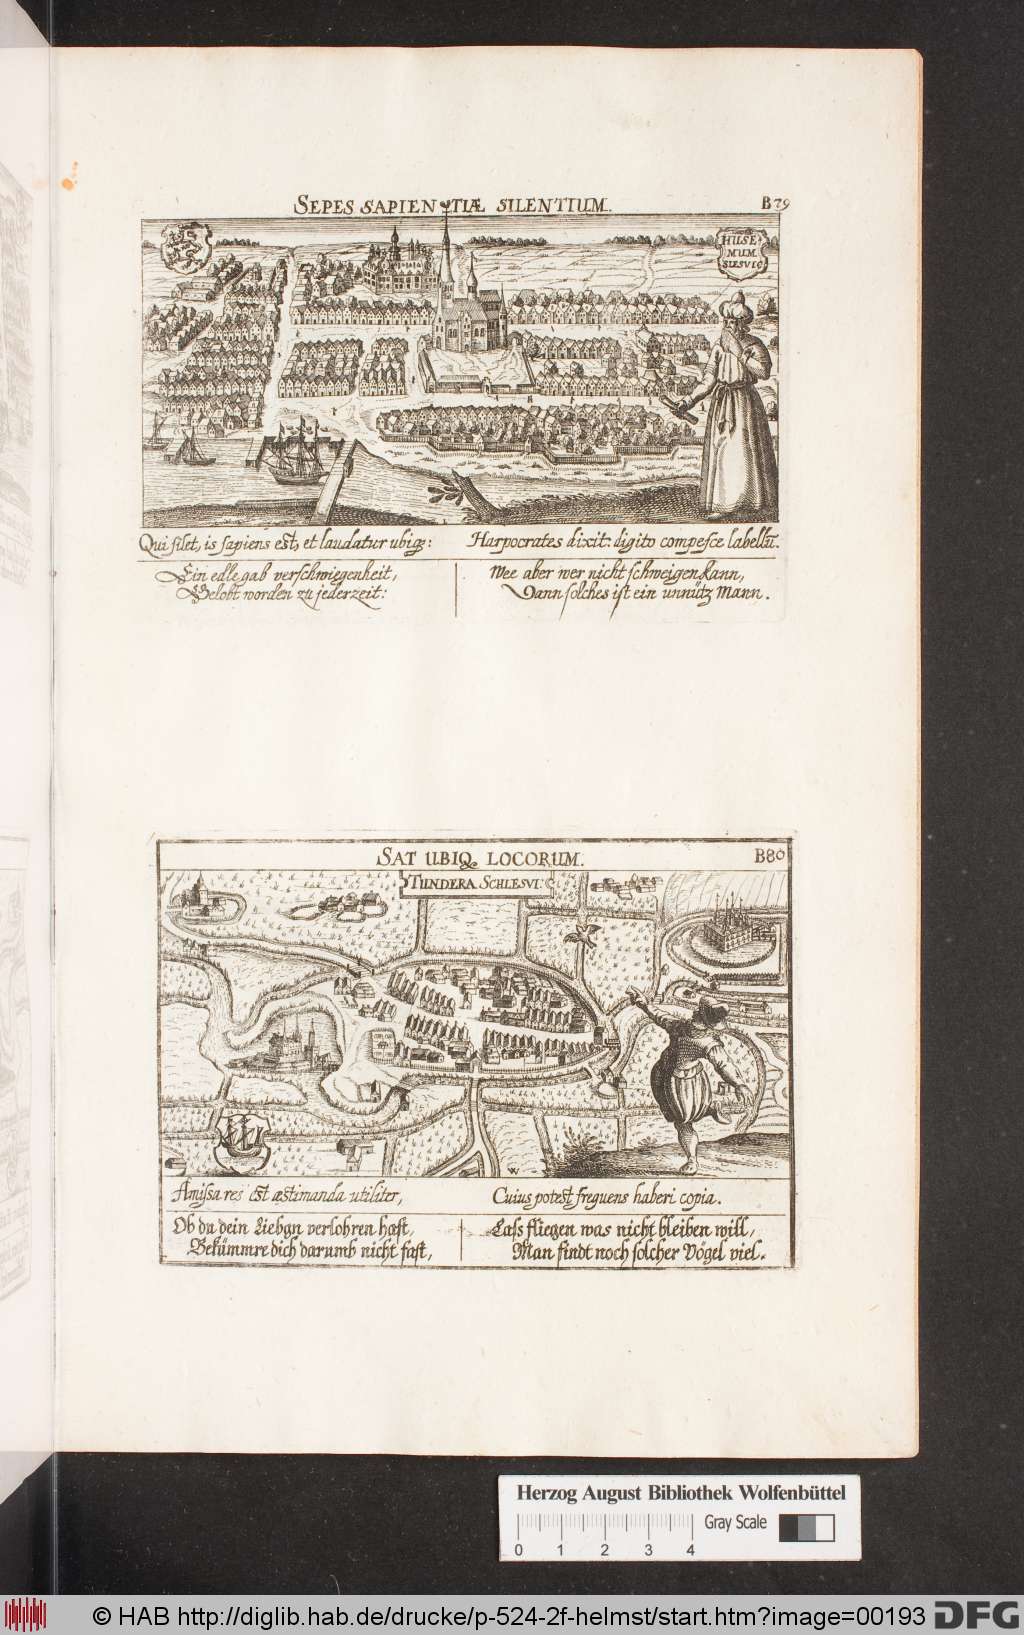 SEPES SAPIENTIÆ SILENTIUM.
B79
HUSE-
MUM
SLESVIC
Qui silet, is sapiens est, et laudatur ubiq3:
Harpocrates dixit: digito compesce labellū.
Ein edle gab verschwiegenheit,
Gelobt worden zu jederzeit:
Wee aber wer nicht schweigen kann,
Dann solches ist ein unnütz Mann.
SAT UBIQ3 LOCORUM.
B80
TUNDERA SCHLESVI:
W
Amissa res est æstimanda utiliter,
Cuius potest frequens haberi copia.
Ob du dein Liebgn verlohren hast,
Bekümmre dich darumb nicht fast,
Lass fliegen was nicht bleiben will,
Man findt noch solcher Vögel viel.
Herzog August Bibliothek Wolfenbüttel
Gray Scale
0 1 2 3 4
© HAB http://diglib.hab.de/drucke/p-524-2f-helmst/start.htm?image=00193
DFG